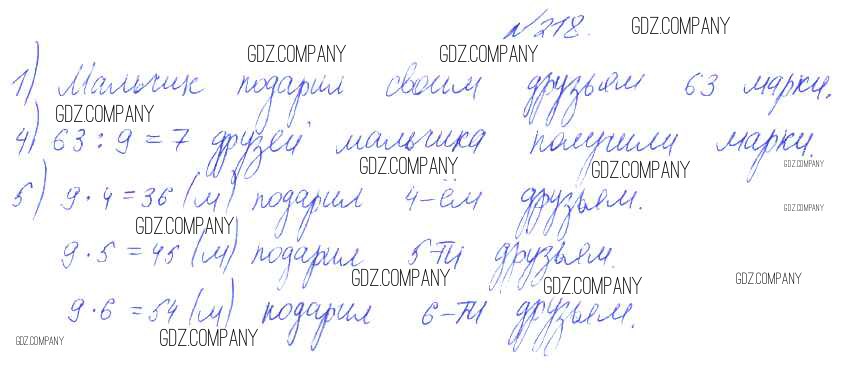 №218. GDZ.COMPANY
GDZ.COMPANY GDZ.COMPANY
1) Мальчик подарил своим друзьям 63 марки.
GDZ.COMPANY
4) 63 : 9 = 7 друзей мальчика получили марки.
GDZ.COMPANY GDZ.COMPANY GDZ.COMPANY
5) 9 · 4 = 36 (м) подарил 4-ём друзьям.
GDZ.COMPANY GDZ.COMPANY
9 · 5 = 45 (м) подарил 5-ти друзьям.
GDZ.COMPANY GDZ.COMPANY GDZ.COMPANY
9 · 6 = 54 (м) подарил 6-ти друзьям.
GDZ.COMPANY GDZ.COMPANY